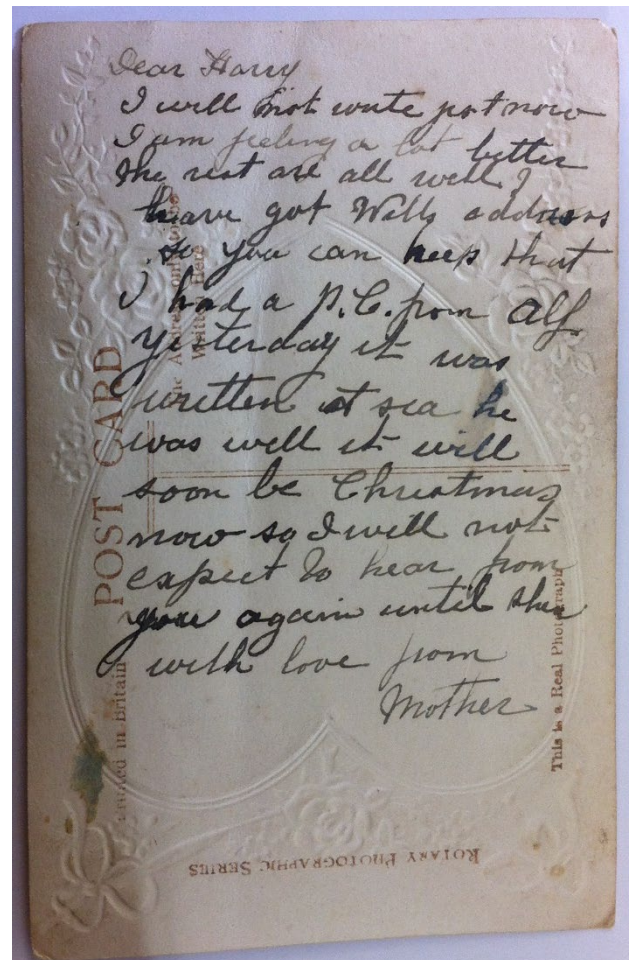 Dear Harry
I will not write pot now
I am feeling a lot better
the rest are all well I
have got Wills address
so you can keep that
I had a P.C. from Alf
yesterday it was
written at sea he
was well it will
soon be Christmas
now so I will not
expect to hear from
you again until then
with love from
Mother
POST CARD
The Address only to be
Written Here
Printed in Britain
This is a Real Photograph
ROTARY PHOTOGRAPHIC SERIES